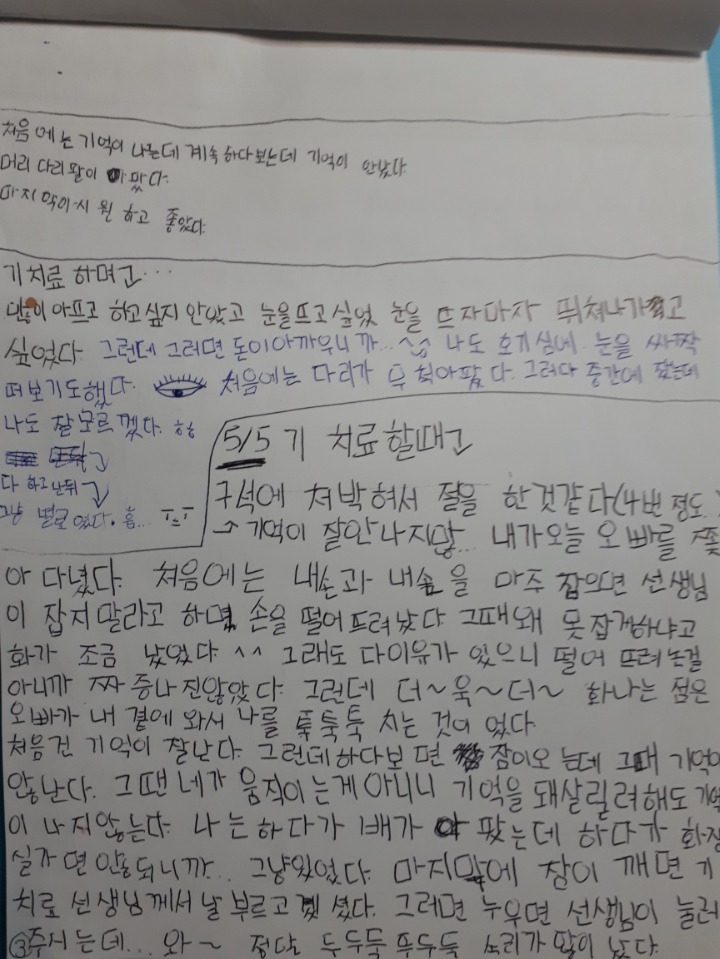 처음에는 기억이 나는데 계속 하다보는데 기억이 안났다
머리 다리 팔이 아팠다.
마지막이 시원하고 좋았다.
기치료 하며고...
많이 아프고 하고싶지 안았고 눈을뜨고싶었 눈을 뜨자마자 뛰쳐나가고
싶었다. 그런데 그러면 돈이아까우니까...^^ 나도 호기심에 눈을 살짝
떠보기도했다. 처음에는 다리가 무척아팠다. 그러다 중간에 잤는데
나도 잘모르겠다. ㅎㅎ
다 하고난뒤
그냥 별로였다. 흠... ㅜㅡㅜ
5/5 기 치료할때고
구석에 처박혀서 절을 한것같다(4번 정도..)
→ 기억이 잘안나지많... 내가오늘 오빠를 쫓
아다녔다. 처음에는 내손과 내손을 마주 잡으면 선생님
이 잡지말라고 하며 손을 떨어뜨려놨다 그때왜 못잡게하냐고
화가 조금 났었다 ^^ 그래도 다이유가 있으니 떨어뜨려논걸
아니까 짜증나진않았다. 그런데 더~욱~더~ 화나는 점은
오빠가 내 곁에 와서 나를 툭툭툭 치는 것이 었다
처음건 기억이 잘난다. 그런데하다보면 잠이오는데 그때 기억이
않난다. 그땐네가 움직이는게아니니 기억을 돼살릴려해도 기억
이 나지않는다. 나는하다가 배가 아팠는데 하다가 화장
실가면안되니까.. 그냥있었다. 마지막에 잠이 깨면 기
치료 선생님께서 날 부르고계셨다. 그러면 누우면 선생님이 눌러
③주시는데... 와~ 정말 두두둑 뚜두둑 소리가 많이 났다.